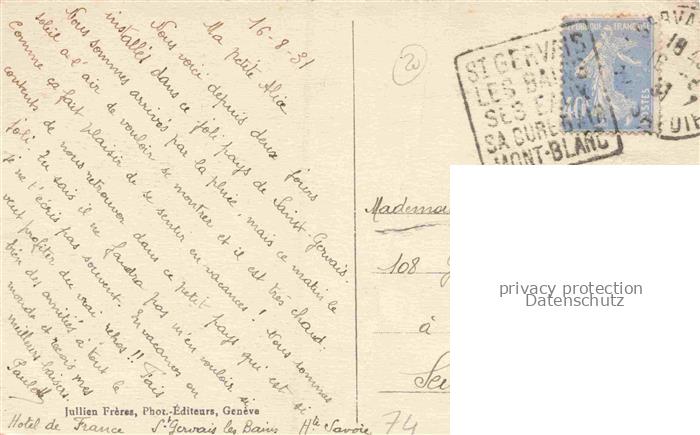 16-8-31
Ma petite Alice
Nous voici depuis deux jours
installés dans ce joli pays de Saint-Gervais.
Nous sommes arrivés par la pluie, mais ce matin le
soleil a l'air de vouloir se montrer et il est très chaud.
Comme ça fait plaisir de se sentir en vacances ! Nous sommes
contents de nous retrouver dans ce petit pays qui est si
joli. Tu sais il ne faudra pas m'en vouloir si
je ne t'écris pas souvent. En vacances on
veut profiter du vrai repos !! Fais
bien des amitiés à tout le
monde et reçois mes
meilleurs baisers.
Paulette
Jullien Frères, Phot.-Éditeurs, Genève
Hotel de France St Gervais les Bains Hte Savoie
74
20
ST GERVAIS
LES BAINS
SES EAUX
SA CURE D'AIR
MONT-BLANC
RÉPUBLIQUE FRANÇAISE
40
POSTES
18
Mademoi
108
à
privacy protection
Datenschutz